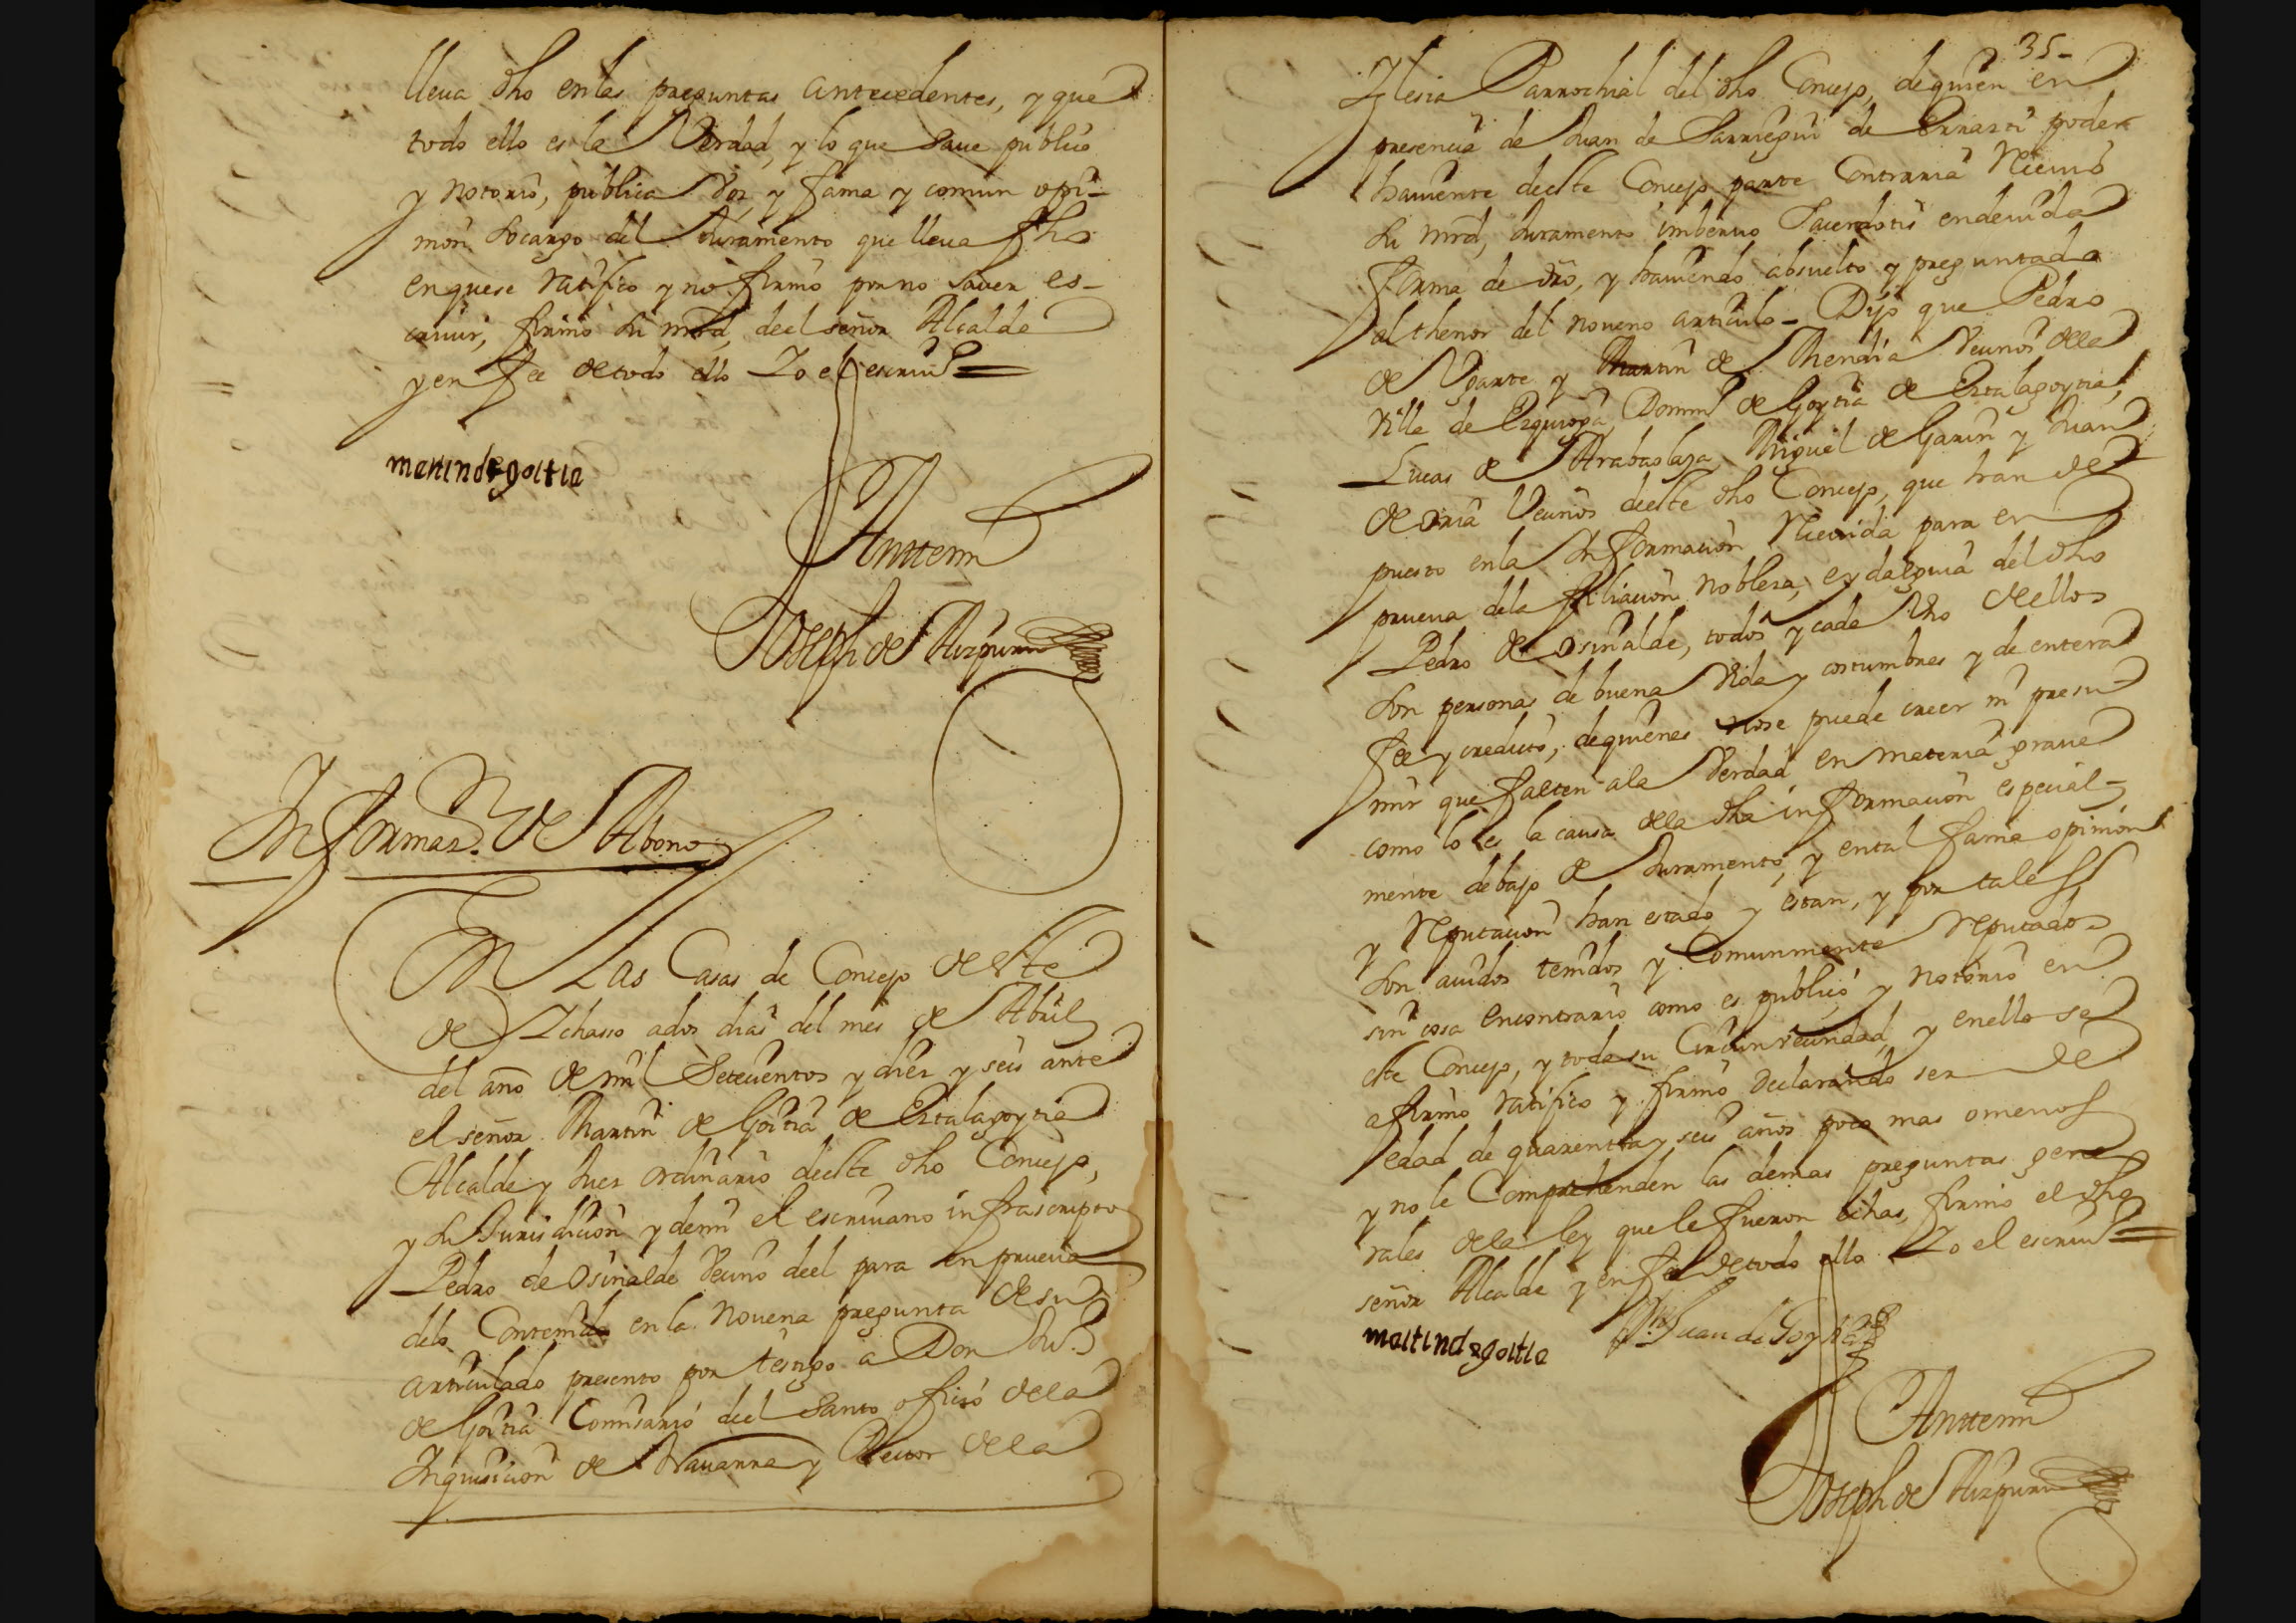 lleua dho enlas preguntas antecedentes, y que
todo ello es la Verdad, y lo que saue publico
y notorio, publica Voz, y fama y comun opi-
nion socargo del Juramento que lleua fho
enquese ratifico y no firmo por no sauer es-
criuir, firmo su mrd, deel señor Alcalde
y en fee de todo ello Yo el escriuº =
martindegoitia
Anttemi
Joseph de Aizpuru
Informaz.n de Abono
En Las Casas de Concejo de este
de Ychasso ados dias del mes de Abril
del año de mil Setecientos y diez y seis ante
el señor Martin de Goitia de Eztalagoytia
Alcalde y Juez ordinario deeste dho Concejo,
y su Jurisdicion y demi el escriuano infrascripto
Pedro de Osinalde Vecino deel para en prueua
delo Contenido enla Nouena pregunta de su
articulado presento por testigo a Don Juº
de Goitia Comisario del Santo oficio dela
Inquisicion de Nauarra y Rector dela
35-
Yglesia Parrochial del dho Concejo, dequien en
presencia de Juan de Sarriegui de Ernazti poder
hauiente deeste Concejo parte Contraria Reciuio
su mrd, Juramento imberuo Sacerdotis endeuida
forma de dro, y hauiendo absuelto y preguntado
al thenor del noueno articulo - Dijo que Pedro
de Ugarte y Martin de Mendia Vecinos dela
Villa de Ezquioga, Domin.º de Goytia de Eztalagoytia,
Lucas de Arabaolaza, Miguel de Garin y Juan
de oria Vecinos deeste dho Concejo, que han de
puesto enla Informacion Reciuida para en
prueua dela filiacion nobleza, eydalguia del dho
Pedro de Osinalde, todos y cada Vno de ellos
son personas de buena Vida y costumbres y de entera
fee y credito, dequienes nose puede creer ni presu
mir que falten ala Verdad en materia graue
como lo es la causa dela dha informacion especial-
mente debajo de Juramento, y ental fama opinion
y Reputacion han estado y estan, y por tales
son auidos tenidos y Comunmente Reputados
sin cosa encontrario como es publico y notorio en
este Concejo, y toda su Circunvecindad, y enello se
afirmo ratifico y firmo declarando ser de
edad de quarentta y seis años poco mas omenos
y no le Comprehenden las demas preguntas gene
rales dela ley que le fueron echas, firmo el dho
señor Alcalde y en fee de todo ello Yo el escriuº =
martindegoitia
Juan de Goytia
Anttemi
Joseph de Aizpuru